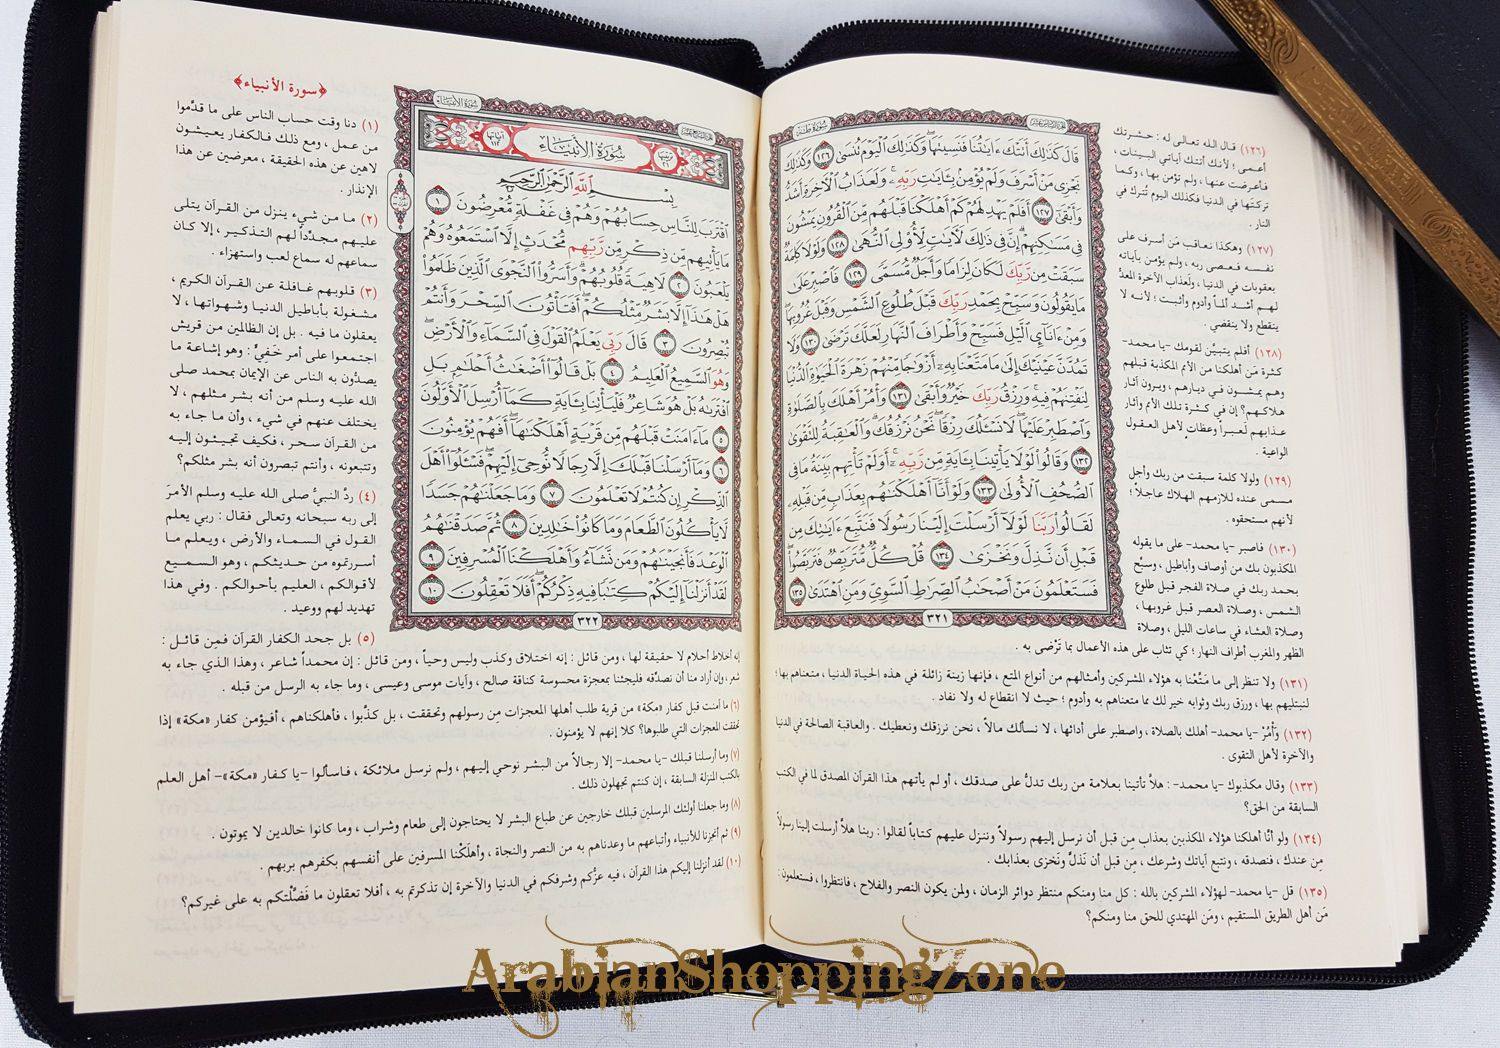 سورة طه
قَالَ كَذَٰلِكَ أَتَتْكَ ءَايَٰتُنَا فَنَسِيتَهَا ۖ وَكَذَٰلِكَ ٱلْيَوْمَ تُنسَىٰ ١٢٦ وَكَذَٰلِكَ
نَجْزِى مَنْ أَسْرَفَ وَلَمْ يُؤْمِنۢ بِـَٔايَٰتِ رَبِّهِۦ ۚ وَلَعَذَابُ ٱلْءَاخِرَةِ أَشَدُّ
وَأَبْقَىٰٓ ١٢٧ أَفَلَمْ يَهْدِ لَهُمْ كَمْ أَهْلَكْنَا قَبْلَهُم مِّنَ ٱلْقُرُونِ يَمْشُونَ
فِى مَسَٰكِنِهِمْ ۗ إِنَّ فِى ذَٰلِكَ لَءَايَٰتٍ لِّأُو۟لِى ٱلنُّهَىٰ ١٢٨ وَلَوْلَا كَلِمَةٌ
سَبَقَتْ مِن رَّبِّكَ لَكَانَ لِزَامًا وَأَجَلٌ مُّسَمًّى ١٢٩ فَٱصْبِرْ عَلَىٰ
مَا يَقُولُونَ وَسَبِّحْ بِحَمْدِ رَبِّكَ قَبْلَ طُلُوعِ ٱلشَّمْسِ وَقَبْلَ غُرُوبِهَا ۖ
وَمِنْ ءَانَآئِ ٱلَّيْلِ فَسَبِّحْ وَأَطْرَافَ ٱلنَّهَارِ لَعَلَّكَ تَرْضَىٰ ١٣٠ وَلَا
تَمُدَّنَّ عَيْنَيْكَ إِلَىٰ مَا مَتَّعْنَا بِهِۦٓ أَزْوَٰجًا مِّنْهُمْ زَهْرَةَ ٱلْحَيَوٰةِ ٱلدُّنْيَا
لِنَفْتِنَهُمْ فِيهِ ۚ وَرِزْقُ رَبِّكَ خَيْرٌ وَأَبْقَىٰ ١٣١ وَأْمُرْ أَهْلَكَ بِٱلصَّلَوٰةِ
وَٱصْطَبِرْ عَلَيْهَا ۖ لَا نَسْـَٔلُكَ رِزْقًا ۖ نَّحْنُ نَرْزُقُكَ ۗ وَٱلْعَٰقِبَةُ لِلتَّقْوَىٰ
١٣٢ وَقَالُوا۟ لَوْلَا يَأْتِينَا بِـَٔايَةٍ مِّن رَّبِّهِۦٓ ۚ أَوَلَمْ تَأْتِهِم بَيِّنَةُ مَا فِى
ٱلصُّحُفِ ٱلْأُولَىٰ ١٣٣ وَلَوْ أَنَّآ أَهْلَكْنَٰهُم بِعَذَابٍ مِّن قَبْلِهِۦ
لَقَالُوا۟ رَبَّنَا لَوْلَآ أَرْسَلْتَ إِلَيْنَا رَسُولًا فَنَتَّبِعَ ءَايَٰتِكَ مِن
قَبْلِ أَن نَّذِلَّ وَنَخْزَىٰ ١٣٤ قُلْ كُلٌّ مُّتَرَبِّصٌ فَتَرَبَّصُوا۟ ۖ
فَسَتَعْلَمُونَ مَنْ أَصْحَٰبُ ٱلصِّرَٰطِ ٱلسَّوِىِّ وَمَنِ ٱهْتَدَىٰ ١٣٥
٣٢١
(١٢٦) قال الله تعالى له : حشرتك
أعمى ؛ لأنك أتتك آياتي البينات ،
فأعرضت عنها ، ولم تؤمن بها ، وكما
تركتها في الدنيا فكذلك اليوم تُترك في
النار .
(١٢٧) وهكذا نعاقب مَن أسرف على
نفسه فعصى ربه ، ولم يؤمن بآياته
بعقوبات في الدنيا ، ولَعذاب الآخرة المعدُّ
لهم أشد ألماً وأدوم وأثبت ؛ لأنه لا
ينقطع ولا ينقضي .
(١٢٨) أفلم يتبيَّن لقومك -يا محمد-
كثرة مَن أهلكنا من الأمم المكذبة قبلهم
وهم يمشون في ديارهم ، ويرون آثار
هلاكهم؟ إن في كثرة تلك الأمم وآثار
عذابهم لَعبراً وعظات لأهل العقول
الواعية .
(١٢٩) ولولا كلمة سبقت من ربك وأجل
مسمى عنده للازمهم الهلاك عاجلاً ؛
لأنهم مستحقوه .
(١٣٠) فاصبر -يا محمد- على ما يقوله
المكذبون بك من أوصاف وأباطيل ، وسبِّح
بحمد ربك في صلاة الفجر قبل طلوع
الشمس ، وصلاة العصر قبل غروبها ،
وصلاة العشاء في ساعات الليل ، وصلاة
الظهر والمغرب أطراف النهار ؛ كي تثاب على هذه الأعمال بما تَرْضى به .
(١٣١) ولا تنظر إلى ما مَتَّعْنا به هؤلاء المشركين وأمثالهم من أنواع المتع ، فإنها زينة زائلة في هذه الحياة الدنيا ، متعناهم بها ؛
لنبتليهم بها ، ورزق ربك وثوابه خير لك مما متعناهم به وأدوم ؛ حيث لا انقطاع له ولا نفاد .
(١٣٢) وَأْمُرْ -يا محمد- أهلك بالصلاة ، واصطبر على أدائها ، لا نسألك مالاً ، نحن نرزقك ونعطيك . والعاقبة الصالحة في الدنيا
والآخرة لأهل التقوى .
(١٣٣) وقال مكذبوك -يا محمد- : هلاَّ تأتينا بعلامة من ربك تدلُّ على صدقك ، أو لم يأتهم هذا القرآن المصدق لما في الكتب
السابقة من الحق؟
(١٣٤) ولو أنَّا أهلكنا هؤلاء المكذبين بعذاب مِن قبل أن نرسل إليهم رسولاً وننزل عليهم كتاباً لقالوا : ربنا هلاَّ أرسلت إلينا رسولاً
مِن عندك ، فنصدقه ، ونتبع آياتك وشرعك ، مِن قبل أن نَذلَّ ونَخزى بعذابك .
(١٣٥) قل -يا محمد- لهؤلاء المشركين بالله : كل منا ومنكم منتظر دوائر الزمان ، ولمن يكون النصر والفلاح ، فانتظروا ، فستعلمون :
مَن أهل الطريق المستقيم ، ومَن المهتدي للحق منا ومنكم؟
سورة الأنبياء
سورة الأنبياء
بِسْمِ ٱللَّهِ ٱلرَّحْمَٰنِ ٱلرَّحِيمِ
ٱقْتَرَبَ لِلنَّاسِ حِسَابُهُمْ وَهُمْ فِى غَفْلَةٍ مُّعْرِضُونَ ١
مَا يَأْتِيهِم مِّن ذِكْرٍ مِّن رَّبِّهِم مُّحْدَثٍ إِلَّا ٱسْتَمَعُوهُ وَهُمْ
يَلْعَبُونَ ٢ لَاهِيَةً قُلُوبُهُمْ ۗ وَأَسَرُّوا۟ ٱلنَّجْوَى ٱلَّذِينَ ظَلَمُوا۟
هَلْ هَٰذَآ إِلَّا بَشَرٌ مِّثْلُكُمْ ۖ أَفَتَأْتُونَ ٱلسِّحْرَ وَأَنتُمْ
تُبْصِرُونَ ٣ قَالَ رَبِّى يَعْلَمُ ٱلْقَوْلَ فِى ٱلسَّمَآءِ وَٱلْأَرْضِ ۖ
وَهُوَ ٱلسَّمِيعُ ٱلْعَلِيمُ ٤ بَلْ قَالُوٓا۟ أَضْغَٰثُ أَحْلَٰمٍۭ بَلِ
ٱفْتَرَىٰهُ بَلْ هُوَ شَاعِرٌ فَلْيَأْتِنَا بِـَٔايَةٍ كَمَآ أُرْسِلَ ٱلْأَوَّلُونَ
٥ مَآ ءَامَنَتْ قَبْلَهُم مِّن قَرْيَةٍ أَهْلَكْنَٰهَآ ۖ أَفَهُمْ يُؤْمِنُونَ
٦ وَمَآ أَرْسَلْنَا قَبْلَكَ إِلَّا رِجَالًا نُّوحِىٓ إِلَيْهِمْ ۖ فَسْـَٔلُوٓا۟ أَهْلَ
ٱلذِّكْرِ إِن كُنتُمْ لَا تَعْلَمُونَ ٧ وَمَا جَعَلْنَٰهُمْ جَسَدًا
لَّا يَأْكُلُونَ ٱلطَّعَامَ وَمَا كَانُوا۟ خَٰلِدِينَ ٨ ثُمَّ صَدَقْنَٰهُمُ
ٱلْوَعْدَ فَأَنجَيْنَٰهُمْ وَمَن نَّشَآءُ وَأَهْلَكْنَا ٱلْمُسْرِفِينَ ٩
لَقَدْ أَنزَلْنَآ إِلَيْكُمْ كِتَٰبًا فِيهِ ذِكْرُكُمْ ۖ أَفَلَا تَعْقِلُونَ ١٠
٣٢٢
﴿سورة الأنبياء﴾
(١) دنا وقت حساب الناس على ما قدَّموا
من عمل ، ومع ذلك فالكفار يعيشون
لاهين عن هذه الحقيقة ، معرضين عن هذا
الإنذار .
(٢) ما من شيء ينزل من القرآن يتلى
عليهم مجدِّداً لهم التذكير ، إلا كان
سماعهم له سماع لعب واستهزاء .
(٣) قلوبهم غافلة عن القرآن الكريم ،
مشغولة بأباطيل الدنيا وشهواتها ، لا
يعقلون ما فيه . بل إن الظالمين من قريش
اجتمعوا على أمر خَفيٍّ : وهو إشاعة ما
يصدُّون به الناس عن الإيمان بمحمد صلى
الله عليه وسلم من أنه بشر مثلهم ، لا
يختلف عنهم في شيء ، وأن ما جاء به
من القرآن سحر ، فكيف تجيئون إليه
وتتبعونه ، وأنتم تبصرون أنه بشر مثلكم؟
(٤) ردَّ النبيُّ صلى الله عليه وسلم الأمرَ
إلى ربه سبحانه وتعالى فقال : ربي يعلم
القول في السماء والأرض ، ويعلم ما
أسررتموه من حديثكم ، وهو السميع
لأقوالكم ، العليم بأحوالكم . وفي هذا
تهديد لهم ووعيد .
(٥) بل جحد الكفار القرآن فمِن قائل :
إنه أخلاط أحلام لا حقيقة لها ، ومن قائل : إنه اختلاق وكذب وليس وحياً ، ومن قائل : إن محمداً شاعر ، وهذا الذي جاء به
شعر ، وإن أراد منا أن نصدِّقه فليجئنا بمعجزة محسوسة كناقة صالح ، وآيات موسى وعيسى ، وما جاء به الرسل من قبله .
(٦) ما آمنت قبل كفار «مكة» من قرية طلب أهلها المعجزات مِن رسولهم وتحققت ، بل كذَّبوا ، فأهلكناهم ، أفيؤمن كفار «مكة» إذا
تحققت المعجزات التي طلبوها؟ كلا إنهم لا يؤمنون .
(٧) وما أرسلنا قبلك -يا محمد- إلا رجالاً من البشر نوحي إليهم ، ولم نرسل ملائكة ، فاسألوا -يا كفار «مكة»- أهل العلم
بالكتب المنزلة السابقة ، إن كنتم تجهلون ذلك .
(٨) وما جعلنا أولئك المرسلين قبلك خارجين عن طباع البشر لا يحتاجون إلى طعام وشراب ، وما كانوا خالدين لا يموتون .
(٩) ثم أنجزنا للأنبياء وأتباعهم ما وعدناهم به من النصر والنجاة ، وأهلَكْنا المسرفين على أنفسهم بكفرهم بربهم .
(١٠) لقد أنزلنا إليكم هذا القرآن ، فيه عزُّكم وشرفكم في الدنيا والآخرة إن تذكرتم به ، أفلا تعقلون ما فَضَّلْتكم به على غيركم؟
ArabianShoppingZone